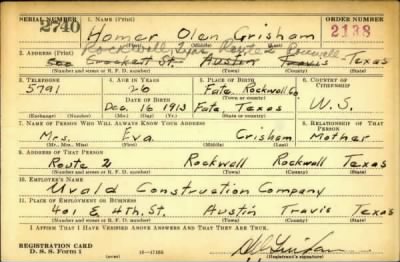 SERIAL NUMBER 1. NAME (Print) ORDER NUMBER
2740 Homer Olen Grisham 2138
(First) (Middle) (Last)
Rockwall, Texas Route 2 Rockwall
2. ADDRESS (Print)
600 Crockett St. Austin Travis Texas
(Number and street or R. F. D. number) (Town) (County) (State)
3. TELEPHONE 4. AGE IN YEARS 5. PLACE OF BIRTH 6. COUNTRY OF CITIZENSHIP
5791 26 Fate, Rockwall Co
DATE OF BIRTH
Dec. 16 1913 Fate, Texas U.S.
(Mo.) (Day) (Yr.) (State or country)
7. NAME OF PERSON WHO WILL ALWAYS KNOW YOUR ADDRESS 8. RELATIONSHIP OF THAT PERSON
Mrs. Eva Grisham Mother
(Mr., Mrs., Miss) (First) (Middle) (Last)
9. ADDRESS OF THAT PERSON
Route 2 Rockwall Rockwall Texas
(Number and street or R. F. D. number) (Town) (County) (State)
10. EMPLOYER'S NAME
Uvald Construction Company
11. PLACE OF EMPLOYMENT OR BUSINESS
401 E 4th. St. Austin Travis Texas
(Number and street or R. F. D. number) (Town) (County) (State)
I AFFIRM THAT I HAVE VERIFIED ABOVE ANSWERS AND THAT THEY ARE TRUE.
REGISTRATION CARD
D. S. S. Form 1 (over)
(Registrant's signature)